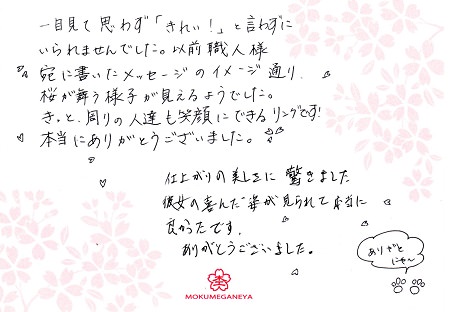 一目見て思わず「きれい!」と言わずに
いられませんでした。以前職人様
宛に書いたメッセージのイメージ通り、
桜が舞う様子が見えるようでした。
きっと、周りの人達も笑顔にできるリングです!
本当にありがとうございました。
仕上がりの美しさに驚きました
彼女の喜んだ姿が見られて本当に
良かったです。
ありがとうございました。
ありがと
にゃ〜
MOKUMEGANEYA